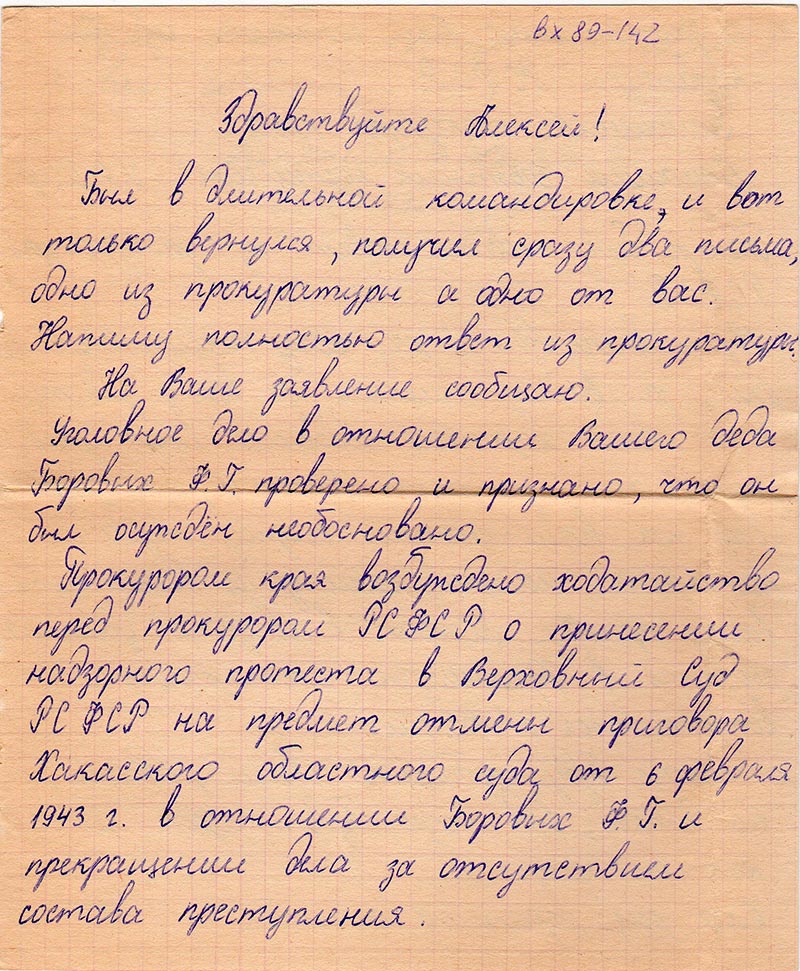 Вх 89-142
Здравствуйте Алексей!
Был в длительной командировке, и вот
только вернулся, получил сразу два письма,
одно из прокуратуры а одно от вас.
Напишу полностью ответ из прокуратуры.
На Ваше заявление сообщаю.
Уголовное дело в отношении Вашего деда
Боровых Ф.Г. проверено и признано, что он
был осуждён необосновано.
Прокурором края возбуждено ходатайство
перед прокурором РСФСР о принесении
надзорного протеста в Верховный Суд
РСФСР на предмет отмены приговора
Хакасского областного суда от 6 февраля
1943 г. в отношении Боровых Ф.Г. и
прекращении дела за отсутствием
состава преступления.